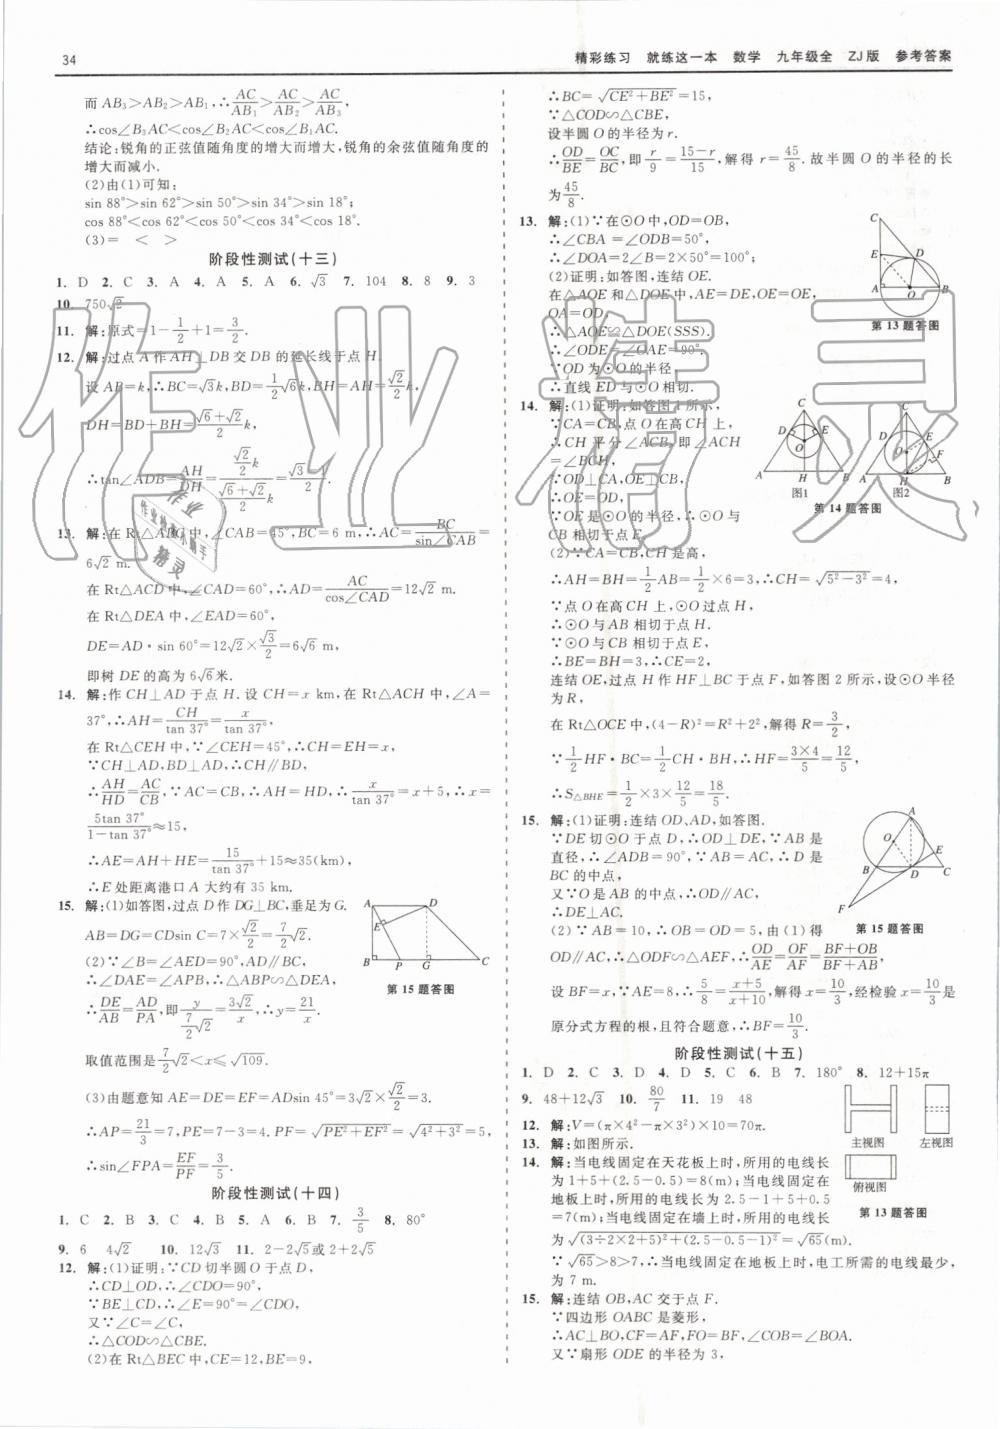 34
精彩练习 就练这一本 数学 九年级全 ZJ版 参考答案
而 AB₃>AB₂>AB₁,∴AC/AB₁>AC/AB₂>AC/AB₃,
∴cos∠B₃AC<cos∠B₂AC<cos∠B₁AC.
结论:锐角的正弦值随角度的增大而增大,锐角的余弦值随角度的
增大而减小.
(2)由(1)可知:
sin 88°>sin 62°>sin 50°>sin 34°>sin 18°;
cos 88°<cos 62°<cos 50°<cos 34°<cos 18°.
(3)= < >
阶段性测试(十三)
1. D 2. C 3. A 4. A 5. A 6. √3 7. 104 8. 8 9. 3
10. 750√2
11. 解:原式=1-1/2+1=3/2.
12. 解:过点 A 作 AH⊥DB 交 DB 的延长线于点 H.
设 AB=k,∴BC=√3k,BD=1/2√6k,BH=AH=√2/2k,
DH=BD+BH=(√6+√2)/2k,
∴tan∠ADB=AH/DH=(√2/2k)/((√6+√2)/2k)=(√3-1)/2.
13. 解:在 Rt△ABC 中,∠CAB=45°,BC=6 m,∴AC=BC/sin∠CAB=
6√2 m.
在 Rt△ACD 中,∠CAD=60°,∴AD=AC/cos∠CAD=12√2 m.
在 Rt△DEA 中,∠EAD=60°,
DE=AD·sin 60°=12√2×√3/2=6√6 m,
即树 DE 的高为 6√6 米.
14. 解:作 CH⊥AD 于点 H.设 CH=x km,在 Rt△ACH 中,∠A=
37°,∴AH=CH/tan 37°=x/tan 37°,
在 Rt△CEH 中,∵∠CEH=45°,∴CH=EH=x,
∵CH⊥AD,BD⊥AD,∴CH∥BD,
∴AH/HD=AC/CB,∵AC=CB,∴AH=HD,∴x/tan 37°=x+5,∴x=
5tan 37°/(1-tan 37°)≈15,
∴AE=AH+HE=15/tan 37°+15≈35(km),
∴E 处距离港口 A 大约有 35 km.
15. 解:(1)如答图,过点 D 作 DG⊥BC,垂足为 G.
AB=DG=CDsin C=7×√2/2=7/2√2.
(2)∵∠B=∠AED=90°,AD∥BC,
∴∠DAE=∠APB,∴△ABP∽△DEA,
∴DE/AB=AD/PA,即y/(7/2√2)=3√2/x,∴y=21/x.
取值范围是7/2√2<x≤√109.
(3)由题意知 AE=DE=EF=ADsin 45°=3√2×√2/2=3.
∴AP=21/3=7,PE=7-3=4.PF=√(PE²+EF²)=√(4²+3²)=5,
∴sin∠FPA=EF/PF=3/5.
A D E B P G C
第 15 题答图
阶段性测试(十四)
1. C 2. B 3. C 4. B 5. A 6. B 7. 3/5 8. 80°
9. 6 4√2 10. 12√3 11. 2-2√5或 2+2√5
12. 解:(1)证明:∵CD 切半圆 O 于点 D,
∴CD⊥OD,∴∠CDO=90°,
∵BE⊥CD,∴∠E=90°=∠CDO,
又∵∠C=∠C,
∴△COD∽△CBE.
(2)在 Rt△BEC 中,CE=12,BE=9,
∴BC=√(CE²+BE²)=15,
∵△COD∽△CBE,
设半圆 O 的半径为 r.
∴OD/BE=OC/BC,即r/9=(15-r)/15,解得 r=45/8.故半圆 O 的半径的长
为45/8.
13. 解:(1)∵在⊙O 中,OD=OB,
∴∠CBA=∠ODB=50°,
∴∠DOA=2∠B=2×50°=100°;
(2)证明:如答图,连结 OE.
在△AOE 和△DOE 中,AE=DE,OE=OE,
OA=OD,
∴△AOE≌△DOE(SSS).
∴∠ODE=∠OAE=90°.
∵OD 为⊙O 的半径
∴直线 ED 与⊙O 相切.
C E D A O B
第 13 题答图
14. 解:(1)证明:如答图 1 所示,
∵CA=CB,点 O 在高 CH 上,
∴CH 平分∠ACB,即∠ACH
=∠BCH,
∵OD⊥CA,OE⊥CB,
∴OE=OD,
∵OE 是⊙O 的半径,∴⊙O 与
CB 相切于点 E.
C D E O A H B
图1
C E O F A H B
图2
第 14 题答图
(2)∵CA=CB,CH 是高,
∴AH=BH=1/2AB=1/2×6=3,∴CH=√(5²-3²)=4,
∵点 O 在高 CH 上,⊙O 过点 H,
∴⊙O 与 AB 相切于点 H.
∵⊙O 与 CB 相切于点 E,
∴BE=BH=3,∴CE=2.
连结 OE,过点 H 作 HF⊥BC 于点 F,如答图 2 所示,设⊙O 半径
为 R,
在 Rt△OCE 中,(4-R)²=R²+2²,解得 R=3/2,
∵1/2HF·BC=1/2CH·BH,∴HF=3×4/5=12/5,
∴S△BHE=1/2×3×12/5=18/5.
15. 解:(1)证明:连结 OD、AD,如答图.
∵DE 切⊙O 于点 D,∴OD⊥DE,∵AB 是
直径,∴∠ADB=90°,∵AB=AC,∴D 是
BC 的中点,
又∵O 是 AB 的中点,∴OD∥AC,
∴DE⊥AC.
A O E B D C F
第 15 题答图
(2)∵AB=10,∴OB=OD=5,由(1)得
OD∥AC,∴△ODF∽△AEF,∴OD/AE=OF/AF=(BF+OB)/(BF+AB)
设 BF=x,∵AE=8,∴5/8=(x+5)/(x+10),解得x=10/3,经检验 x=10/3是
原分式方程的根,且符合题意,∴BF=10/3.
阶段性测试(十五)
1. D 2. C 3. D 4. D 5. C 6. B 7. 180° 8. 12+15π
9. 48+12√3 10. 80/7 11. 19 48
12. 解:V=(π×4²-π×3²)×10=70π.
13. 解:如图所示.
主视图
左视图
俯视图
第 13 题答图
14. 解:当电线固定在天花板上时,所用的电线长
为 1+5+(2.5-0.5)=8(m);当电线固定在
地板上时,所用的电线长为 2.5-1+5+0.5
=7(m);当电线固定在墙上时,所用的电线长
为√((3÷2×2+5)²+(2.5-0.5-1)²)=√65(m).
∵√65>8>7,∴当电线固定在地板上时,电工所需的电线最少,
为 7 m.
15. 解:连结 OB,AC 交于点 F.
∵四边形 OABC 是菱形,
∴AC⊥BO,CF=AF,FO=BF,∠COB=∠BOA.
又∵扇形 ODE 的半径为 3,
作业精灵